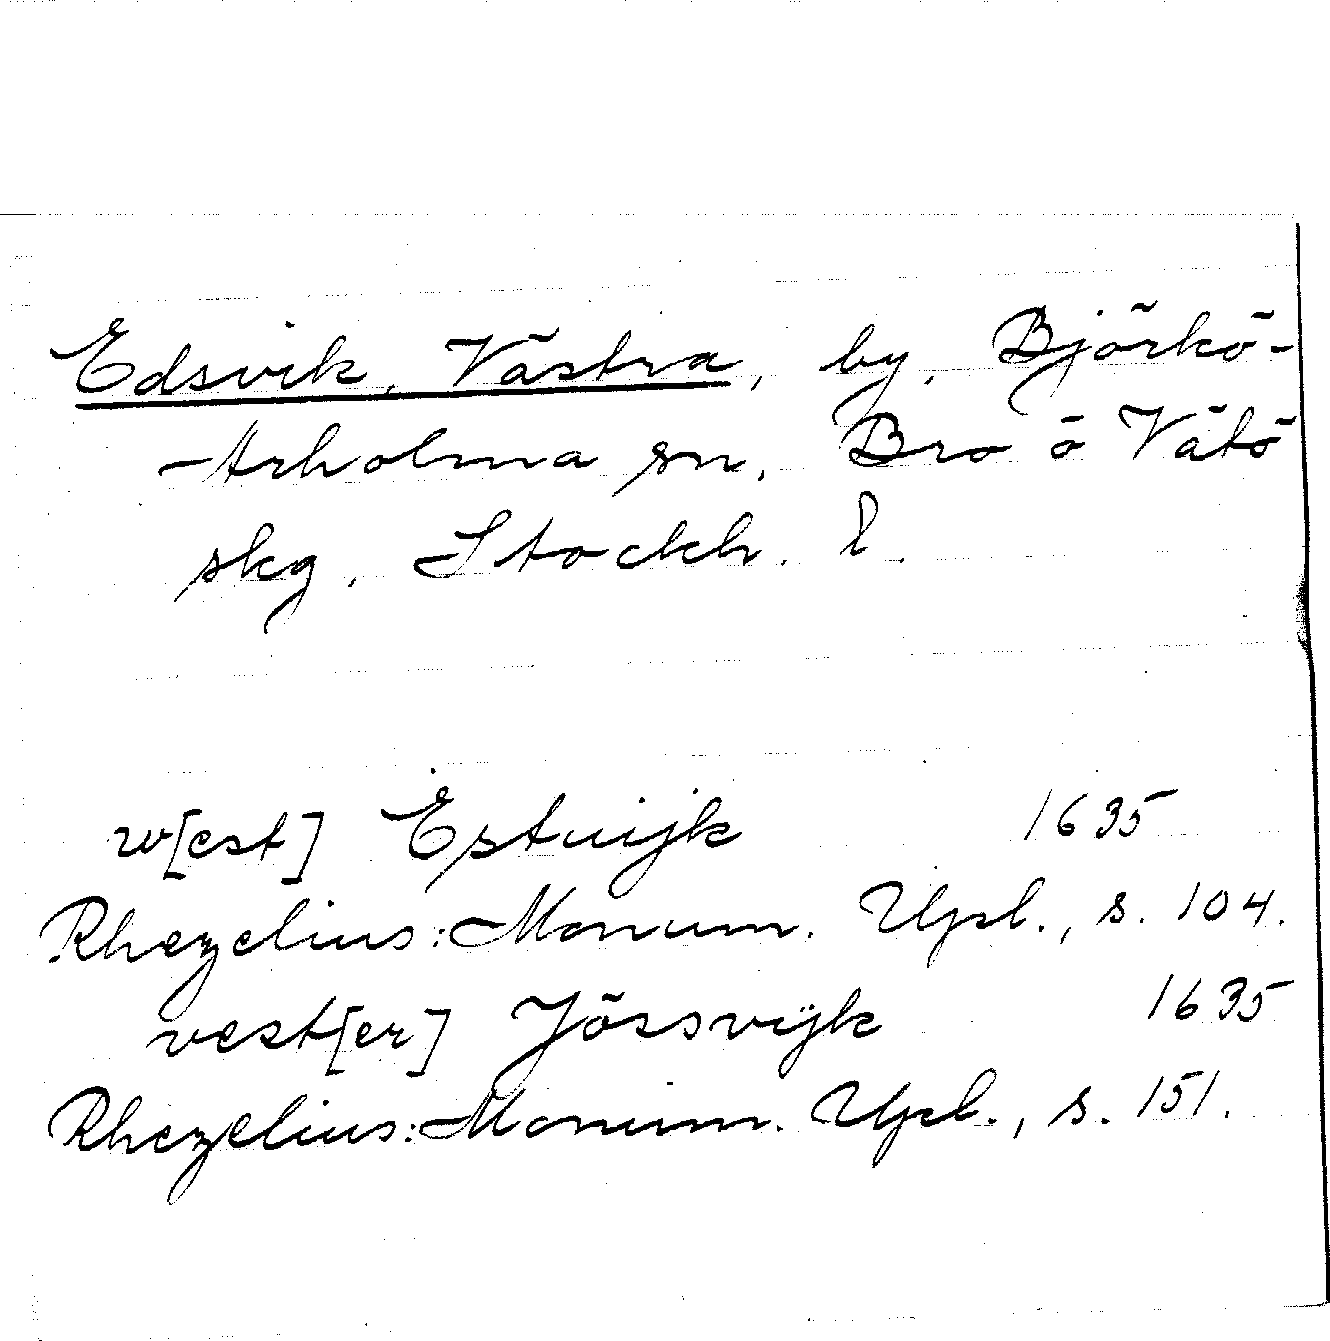 Edsvik, Västra, by, Björkö-
Arholma sn, Bro ö Vätö
skg, Stockh. l.
w[est] Estuijk 1635
Rhezelius: Monum. Upl., s. 104.
vest[er] Jössvijk 1635
Rhezelius: Monum. Upl., s. 151.